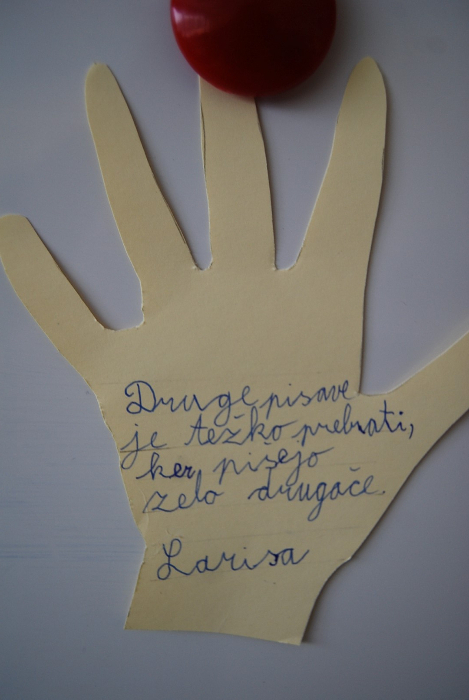 Druge pisave
je težko prebrati,
ker pišejo
zelo drugače.
Larisa